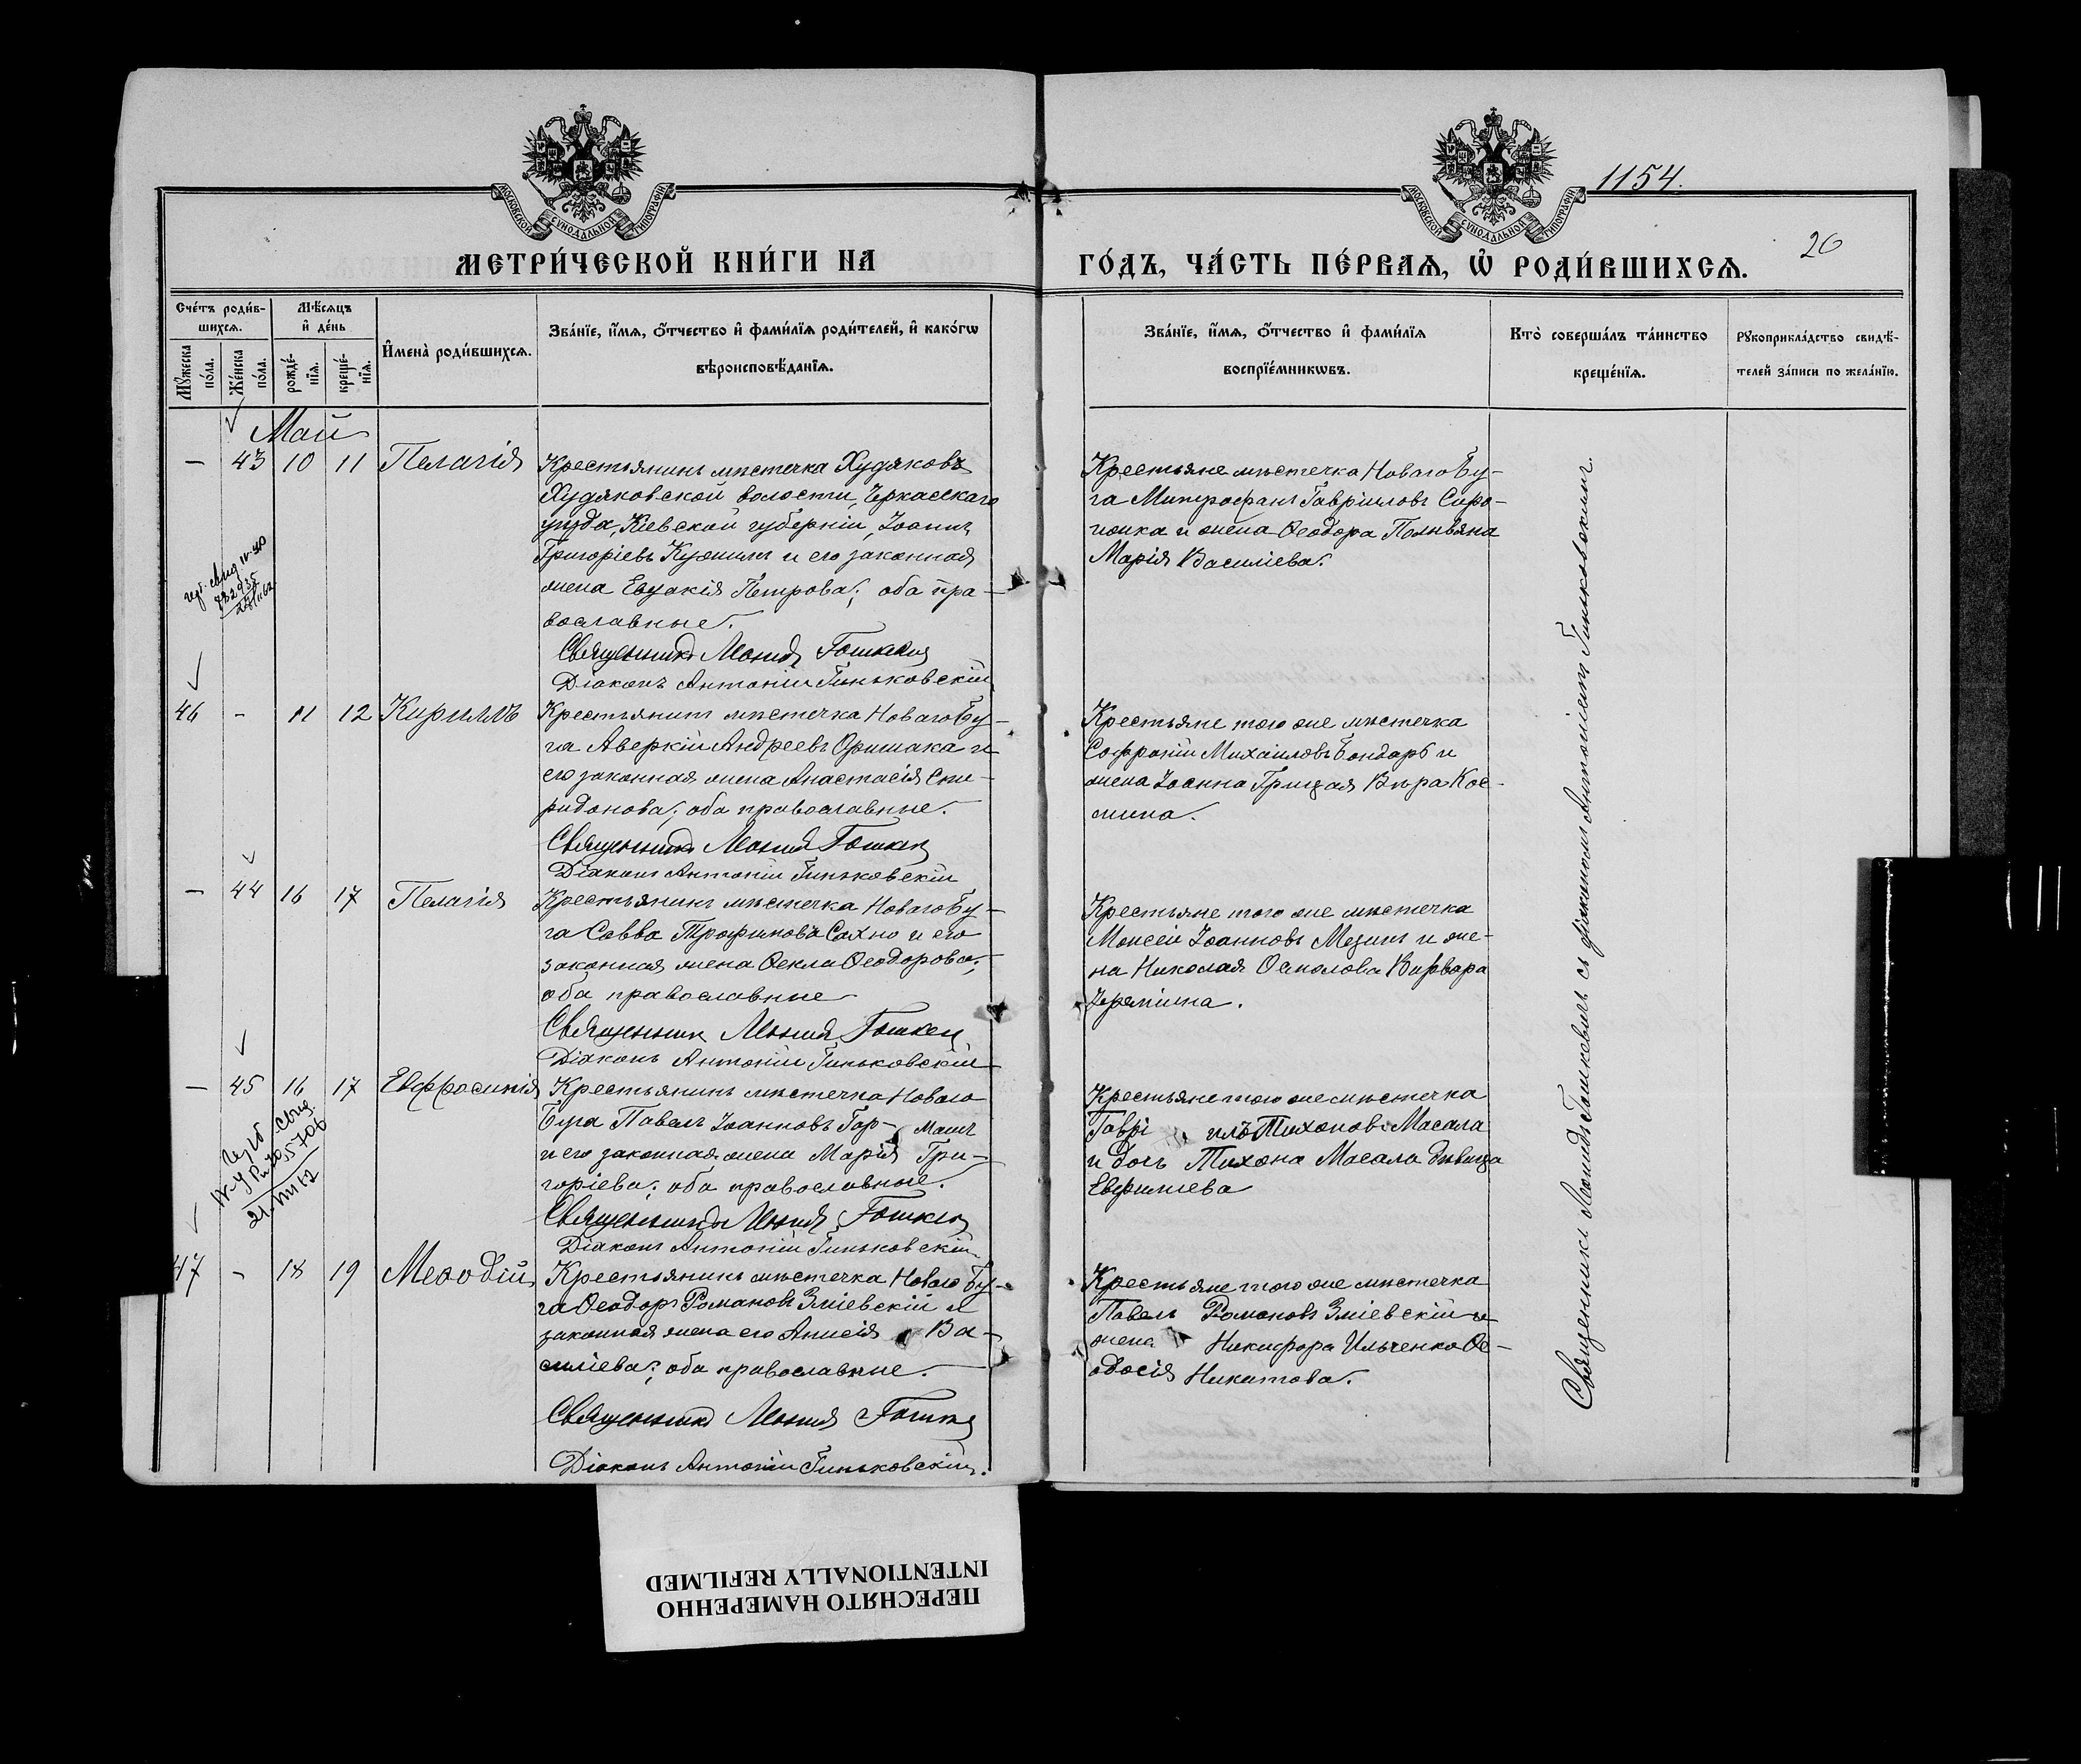 МОСКОВСКОЙ СѴНОДАЛЬНОЙ ТИПОГРАФІИ
МОСКОВСКОЙ СѴНОДАЛЬНОЙ ТИПОГРАФІИ
1154.
20
МЕТРИ́ЧЕСКОЙ КНИ́ГИ НА
ГО́ДЪ, ЧА́СТЬ ПЕ́РВАѦ, Ѡ҆ РОДИ́ВШИХСѦ.
Сче́тъ роди́в-
шихсѧ.
Мѣ́сѧцъ
и҆ де́нь
Мꙋ́жеска
по́ла.
Же́нска
по́ла.
рожде́-
нїѧ.
креще́-
нїѧ.
И҆мена̀ роди́вшихсѧ.
Зва́нїе, и҆́мѧ, ѻ҆́тчество и҆ фами́лїѧ роди́телей, и҆ како́гѡ
вѣроисповѣ́данїѧ.
Зва́нїе, и҆́мѧ, ѻ҆́тчество и҆ фами́лїѧ
воспрїе́мникѡвъ.
Кто̀ соверша́лъ та́инство
креще́нїѧ.
Рꙋкоприкла́дство свидѣ́-
телей за́писи по жела́нїю.
Май
— 43 10 11 Пелагія
Крестьянинъ мѣстечка Худяковъ
Худяковской волости, Черкасскаго
уѣзда, Кіевской губерніи, Іоаннъ
Григоріевъ и его законная
жена Евдокія Петрова; оба пра-
вославные.
Священникъ Леонидъ Гошкевичъ
Діаконъ Антоній Гиньковскій
Крестьяне мѣстечка Новаго Бу-
га Митрофанъ Гавріиловъ Соро-
и жена Ѳеодора
Марія Василіева.
46 - 11 12 Кириллъ
Крестьянинъ мѣстечка Новаго Бу-
га Аверкій Андреевъ и
его законная жена Анастасія Спи-
ридонова; оба православные.
Священникъ Леонидъ Гошкевичъ
Діаконъ Антоній Гиньковскій
Крестьяне того же мѣстечка
Софроній Михаиловъ Бондарь и
жена Іоанна Грицая Вѣра Кос-
мина.
— 44 16 17 Пелагія
Крестьянинъ мѣстечка Новаго Бу-
га Савва Трофимовъ Сахно и его
законная жена Ѳекла Ѳеодорова;
оба православные
Священникъ Леонидъ Гошкевичъ
Діаконъ Антоній Гиньковскій
Крестьяне того же мѣстечка
Моисей Іоанновъ Мезинъ и же-
на Николая Осмолова Варвара
Іереміина.
— 45 16 17 Евфросинія
Крестьянинъ мѣстечка Новаго
Буга Павелъ Іоанновъ Гор- машъ
и его законная жена Марія Гри-
горіева; оба православные.
Священникъ Леонидъ Гошкевичъ
Діаконъ Антоній Гиньковскій
Крестьяне того же мѣстечка
Гаврі илъ Тихоновъ Масала
и дочь Тихона Масала дѣвица
47 - 18 19 Меѳодій
Крестьянинъ мѣстечка Новаго Бу-
га Ѳеодоръ Романовъ Зміевскій и
законная жена его Анисія Ва-
силіева; оба православные.
Священникъ Леонидъ Гошкевичъ
Діаконъ Антоній Гиньковскій.
Крестьяне того же мѣстечка
Павелъ Романовъ Зміевскій и
жена Никифора Ильченко Ѳе-
одосія Никитова.
Священникъ Леонидъ Гошкевичъ съ діакономъ Антоніемъ Гиньковскимъ.
ПЕРЕСНЯТО НАМЕРЕННО
INTENTIONALLY REFILMED